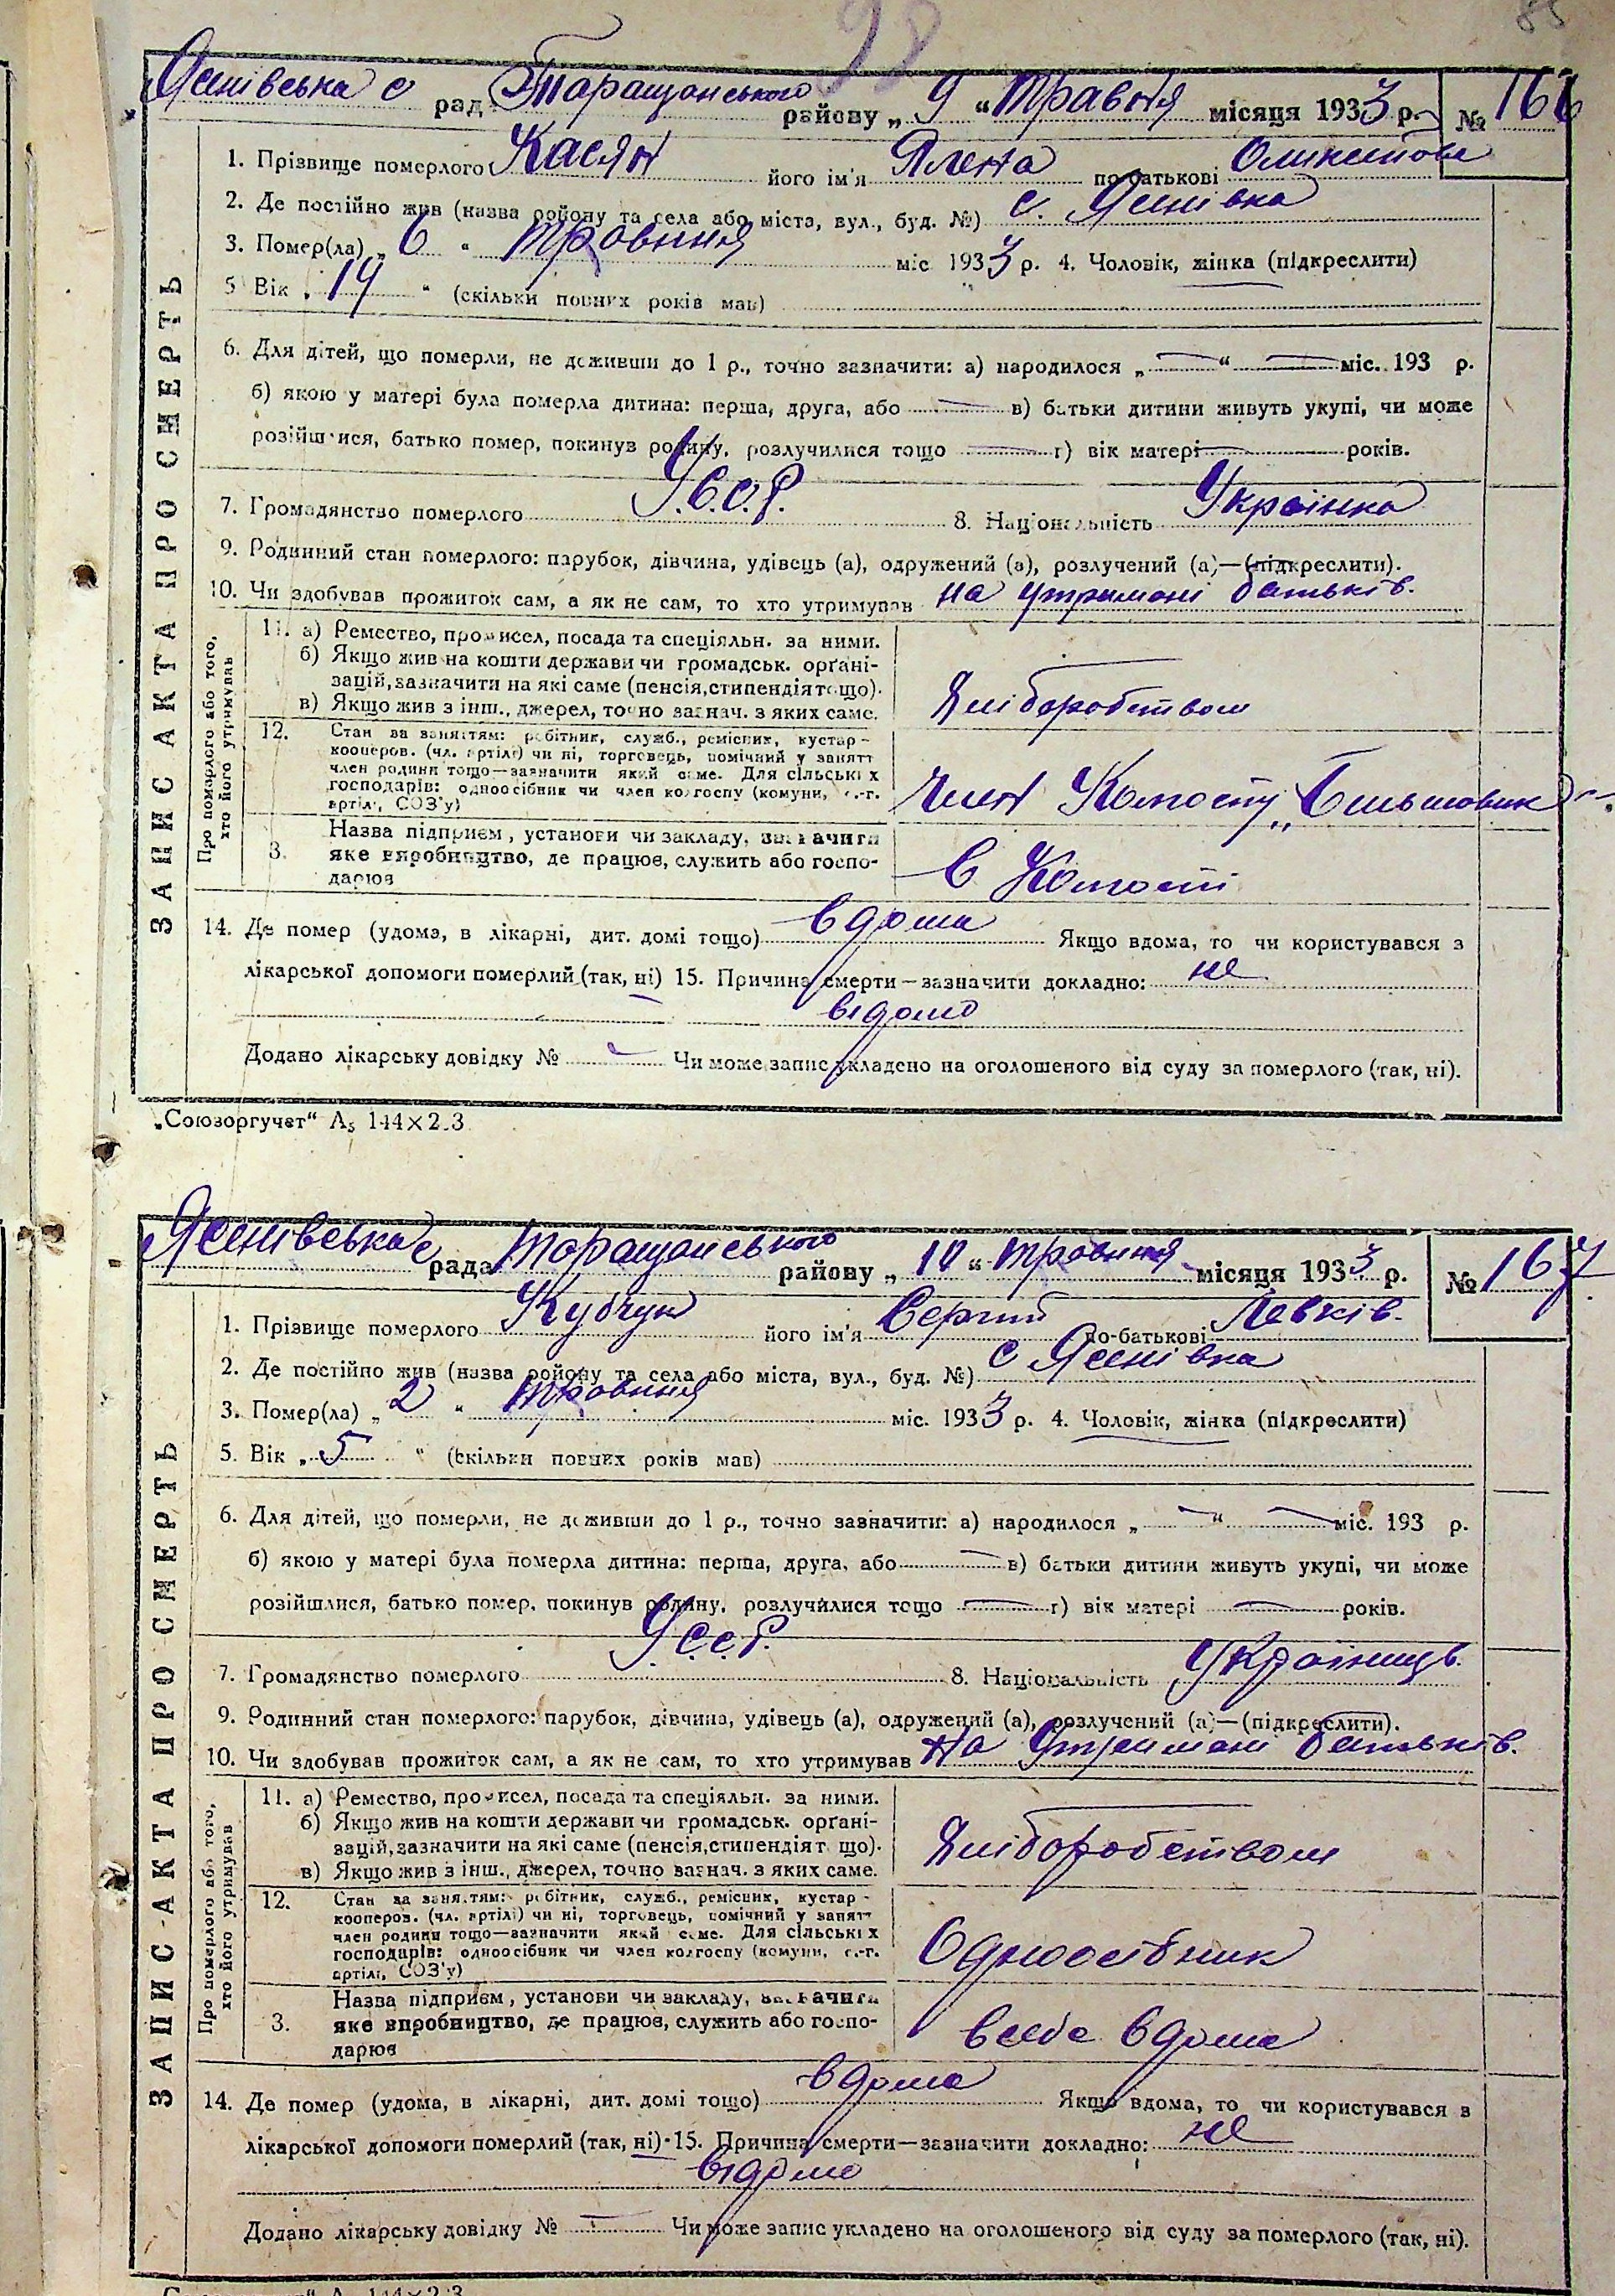 98
85
Ясенівська с рад Таращанського району „ 9 “ травня місяця 1933 р. № 166
ЗАПИС АКТА ПРО СМЕРТЬ
1. Прізвище померлого Касян його ім'я Олена по батькові
2. Де постійно жив (назва району та села або міста, вул., буд. №) с. Ясенівка
3. Помер(ла) „ 6 “ травня міс 1933 р. 4. Чоловік, жінка (підкреслити)
5 Вік „ 14 “ (скільки повних років мав)
6. Для дітей, що померли, не доживши до 1 р., точно зазначити: а) народилося „ — “ — міс. 193 р.
б) якою у матері була померла дитина: перша, друга, або — в) батьки дитини живуть укупі, чи може
розійшлися, батько помер, покинув родину, розлучилися тощо — г) вік матері — років.
7. Громадянство померлого У.С.С.Р. 8. Національність Українка
9. Родинний стан померлого: парубок, дівчина, удівець (а), одружений (а), розлучений (а)—(підкреслити).
10. Чи здобував прожиток сам, а як не сам, то хто утримував на утримані батьків.
Про померлого або того, хто його утримував
11. а) Ремество, промисел, посада та спеціяльн. за ними.
б) Якщо жив на кошти держави чи громадськ. орґані-
зацій, зазначити на які саме (пенсія, стипендія тощо).
в) Якщо жив з інш., джерел, точно зазнач. з яких саме.
Хліборобством
12. Стан за заняттям: робітник, служб., ремісник, кустар -
кооперов. (чл. артілі) чи ні, торговець, помічний у занятт
член родини тощо—зазначити який саме. Для сільських
господарів: одноосібник чи член колгоспу (комуни, с.-г.
артілі, СОЗ'у)
член Колгоспу „Більшовик
3. Назва підприєм, установи чи закладу, зазначити
яке виробництво, де працює, служить або госпо-
дарює
в Колгоспі
14. Де помер (удома, в лікарні, дит. домі тощо) вдома Якщо вдома, то чи користувався з
лікарської допомоги померлий (так, ні) 15. Причина смерти—зазначити докладно: не
відомо
Додано лікарську довідку № — Чи може запис укладено на оголошеного від суду за померлого (так, ні).
„Союзоргучет“ А₅ 144×2.3
Ясенівська с рада Таращанського району „ 10 “ травня місяця 1933 р. № 167
ЗАПИС АКТА ПРО СМЕРТЬ
1. Прізвище померлого його ім'я Сергий по-батькові Левків.
2. Де постійно жив (назва району та села або міста, вул., буд. №) с Ясенівка
3. Помер(ла) „ 2 “ травня міс. 1933 р. 4. Чоловік, жінка (підкреслити)
5. Вік „ 5 “ (скільки повних років мав)
6. Для дітей, що померли, не доживши до 1 р., точно зазначити: а) народилося „ — “ — міс. 193 р.
б) якою у матері була померла дитина: перша, друга, або — в) батьки дитини живуть укупі, чи може
розійшлися, батько помер, покинув родину, розлучилися тощо — г) вік матері — років.
7. Громадянство померлого У.С.С.Р. 8. Національність Українець.
9. Родинний стан померлого: парубок, дівчина, удівець (а), одружений (а), розлучений (а)—(підкреслити).
10. Чи здобував прожиток сам, а як не сам, то хто утримував На Утримані батьків.
Про померлого або того, хто його утримував
11. а) Ремество, промисел, посада та спеціяльн. за ними.
б) Якщо жив на кошти держави чи громадськ. орґані-
зацій, зазначити на які саме (пенсія, стипендія т що).
в) Якщо жив з інш., джерел, точно зазнач. з яких саме.
Хліборобством
12. Стан за заняттям: робітник, служб., ремісник, кустар -
кооперов. (чл. артілі) чи ні, торговець, помічний у занятт
член родини тощо—зазначити який саме. Для сільських
господарів: одноосібник чи член колгоспу (комуни, с.-г.
артілі, СОЗ'у)
Одноосібник
3. Назва підприєм, установи чи закладу, зазначити
яке виробництво, де працює, служить або госпо-
дарює
в себе вдома
14. Де помер (удома, в лікарні, дит. домі тощо) вдома Якщо вдома, то чи користувався з
лікарської допомоги померлий (так, ні) · 15. Причина смерти—зазначити докладно: не
відомо
Додано лікарську довідку № — Чи може запис укладено на оголошеного від суду за померлого (так, ні).